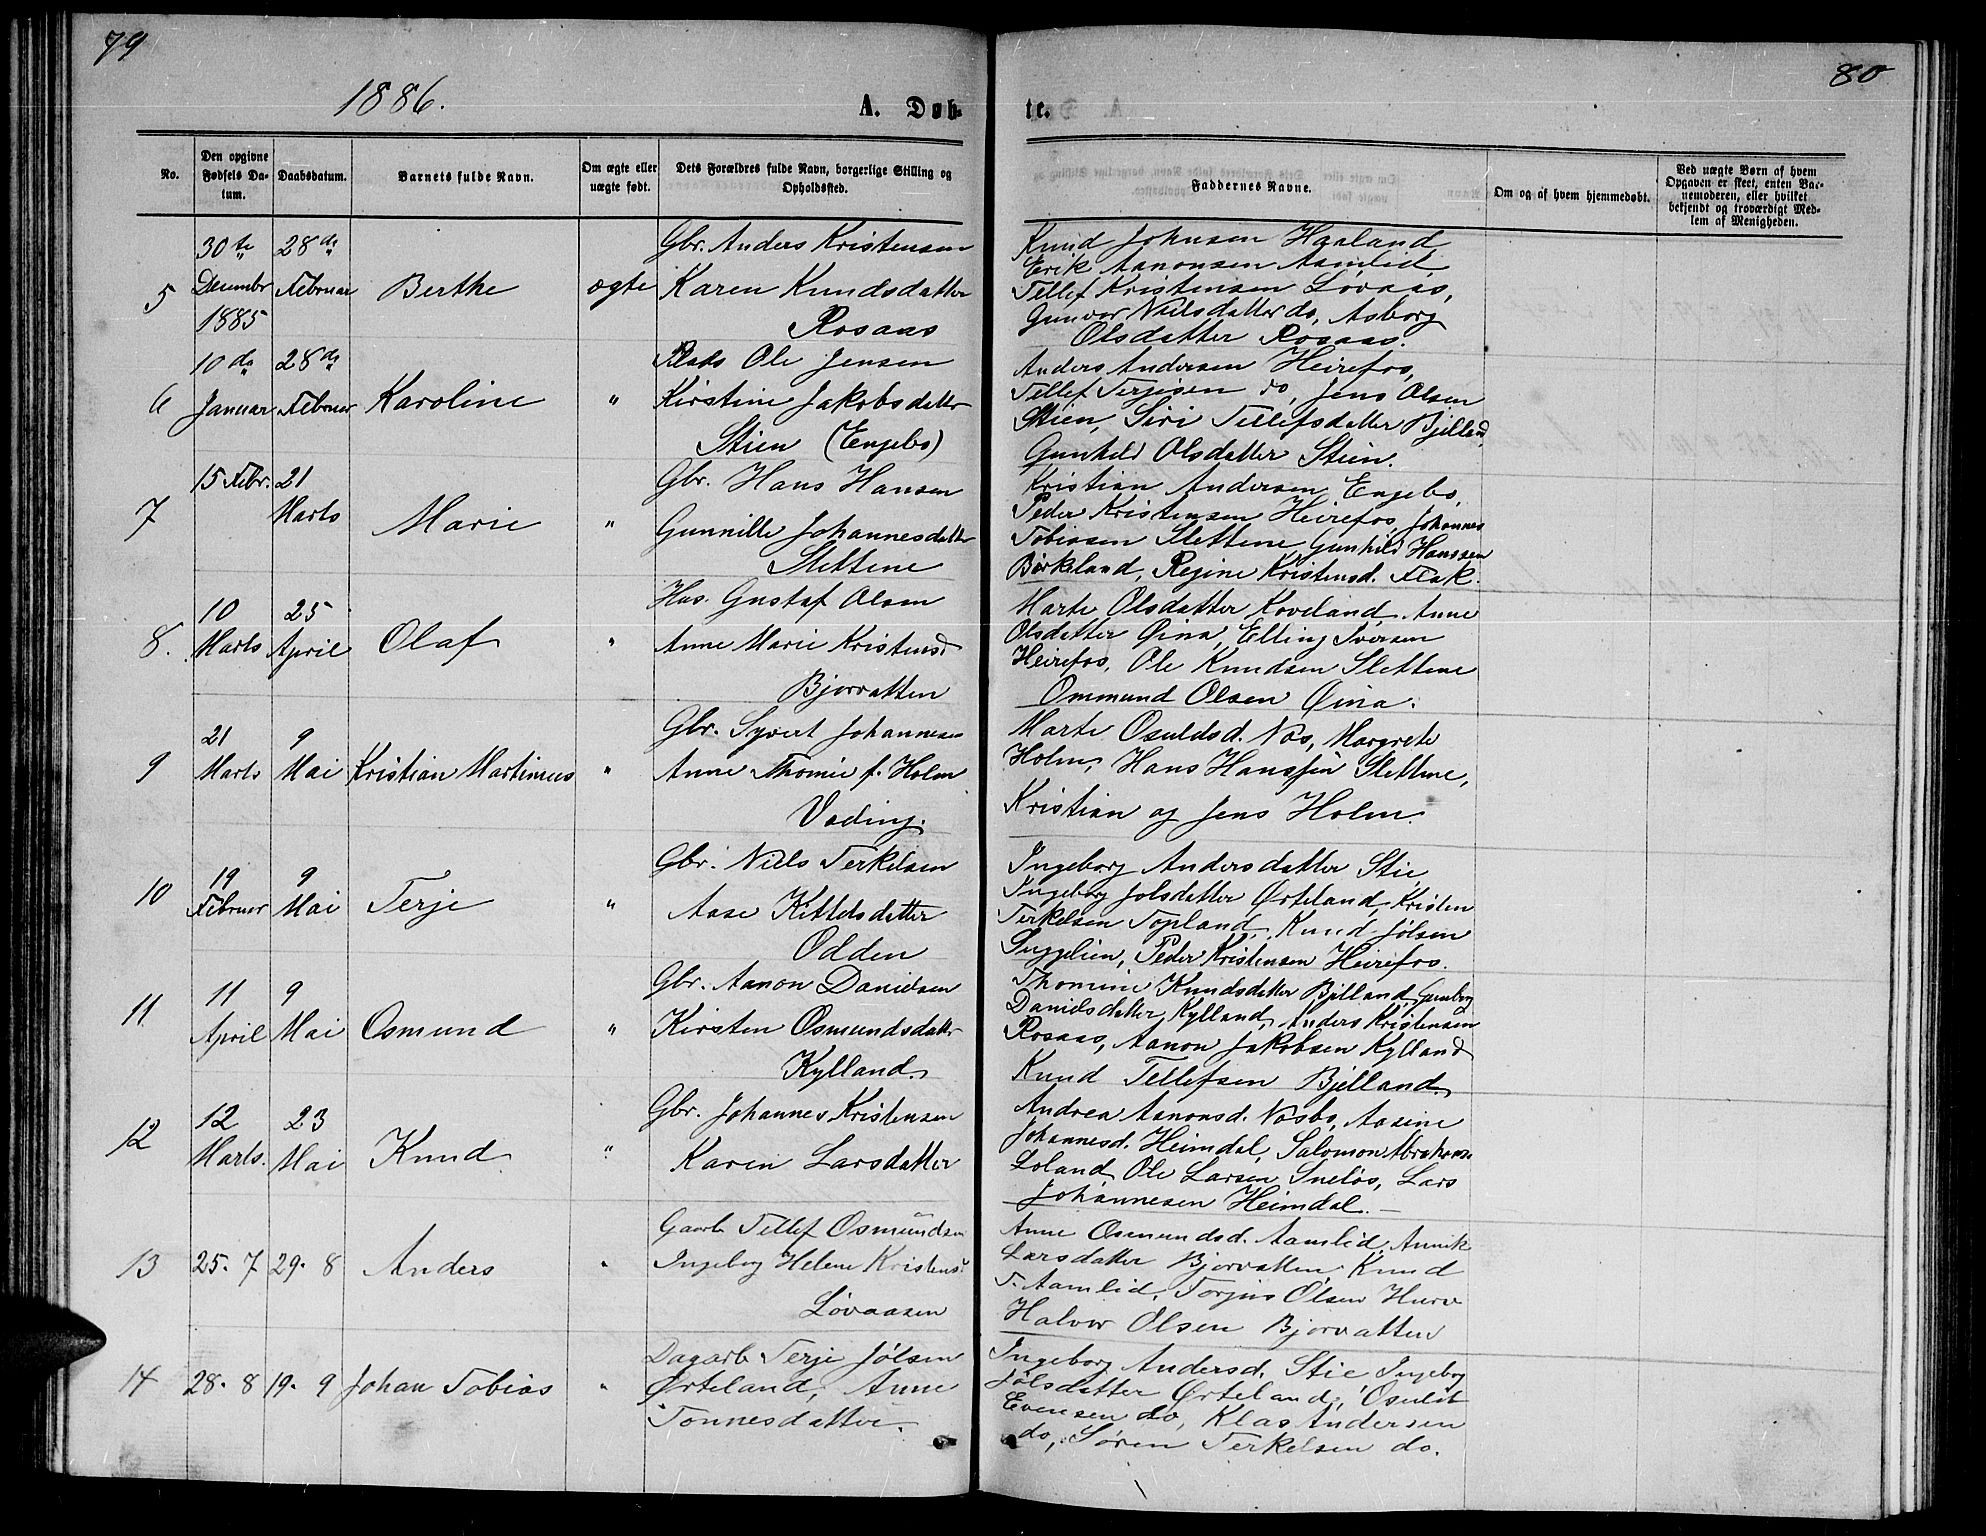 79
80
1886.
A. Døb-
te.
No.
Den opgivne
Fødsels Da-
tum.
Daabsdatum.
Barnets fulde Navn.
Om ægte eller
uægte født.
Dets Forældres fulde Navn, borgerlige Stilling og
Opholdssted.
Faddernes Navne.
Om og af hvem hjemmedøbt.
Ved uægte Børn af hvem
Opgaven er skeet, enten Bar-
nemoderen, eller hvilket
bekjendt og troværdigt Med-
lem af Menigheden.
5
30te
Decembr
1885
28de
Februar
Berthe
ægte
Gbr. Anders Kristensen
Karen Knudsdatter
Rosaas
Knud Johnsen Haaland
Erik Aanonsen Aamlid
Tellef Kristensen Løvaas,
Gunvor Nielsdatter do, Asborg
Olsdatter Rosaas.
6
10de
Januar
28de
Februar
Karoline
"
Plads Ole Jensen
Kirstine Jakobsdatter
Stien (Engebo)
Anders Andersen Heirefos,
Tellef Terjesen do, Jens Olsen
Stien, Siri Tellefsdatter Bjelland
Gunhild Olsdatter Stien.
7
15 Febr.
21
Marts
Marie
"
Gbr. Hans Hansen
Gunnille Johannesdatter
Slettene
Kristian Andersen Engebo,
Peder Kristensen Heirefos, Johannes
Tobiasen Slettene Gunhild Hanssen
Birkeland, Regine Kristensd. Flak.
8.
10
Marts
25
April
Olaf
"
Hus. Gustaf Olsen
Anne Marie Kristensd
Bjorvatten
Marte Olsdatter Koveland, Anne
Olsdatter Øina, Elling Iversen
Heirefos, Ole Knudsen Slettene
Ommund Olsen Øina.
9
21
Marts
9
Mai
Kristian Martinius
"
Gbr. Syvert Johannesen
Anne Thomie f. Holm
Vading.
Marte Osuldsd. Nas, Margrete
Holm, Hans Hanssen Slettene,
Kristian og Jens Holm.
10
19
Februar
9
Mai
Terje
"
Gbr. Niels Terkelsen
Aase Kittelsdatter
Odden
Ingeborg Andersdatter Stie
Ingeborg Jolsdatter Ørteland, Kristen
Terkelsen Topland, Knud Jølsen
Suggelien, Peder Kristensen Heirefos.
11
11
April
9
Mai
Osmund
"
Gbr. Aanon Danielsen
Kirsten Osmundsdatter
Kylland
Thomine Knudsdatter Bjelland, Gunborg
Danielsdatter Kylland, Anders Kristensen
Rosaas, Aanon Jakobsen Kylland
Knud Tellefsen Bjelland
12
12
Marts.
23
Mai
Knud
"
Gbr. Johannes Kristensen
Karen Larsdatter
Andrea Aanonsd. Nasbø, Aasine
Johannesd. Heimdal, Salomon Abrahams
Loland, Ole Larsen Sneløs, Lars
Johannesen Heimdal.
13
25. 7
29. 8
Anders
"
Gaarb Tellef Osmundsen
Ingeborg Helene Kristensd
Løvaasen
Anne Osmundsd. Aamlid, Annik
Larsdatter Bjorvatten Knud
T. Aamlid, Torjus Olsen Hurv
Halvor Olsen Bjorvatten
14
28. 8
19. 9
Johan Tobias
"
Dagarb Terje Jølsen
Ørteland, Anne
Tonnesdatter.
Ingeborg Andersd. Stie Ingeborg
Jølsdatter Ørteland, Osuld
Evensen do, Klas Andersen
do, Søren Terkelsen do.